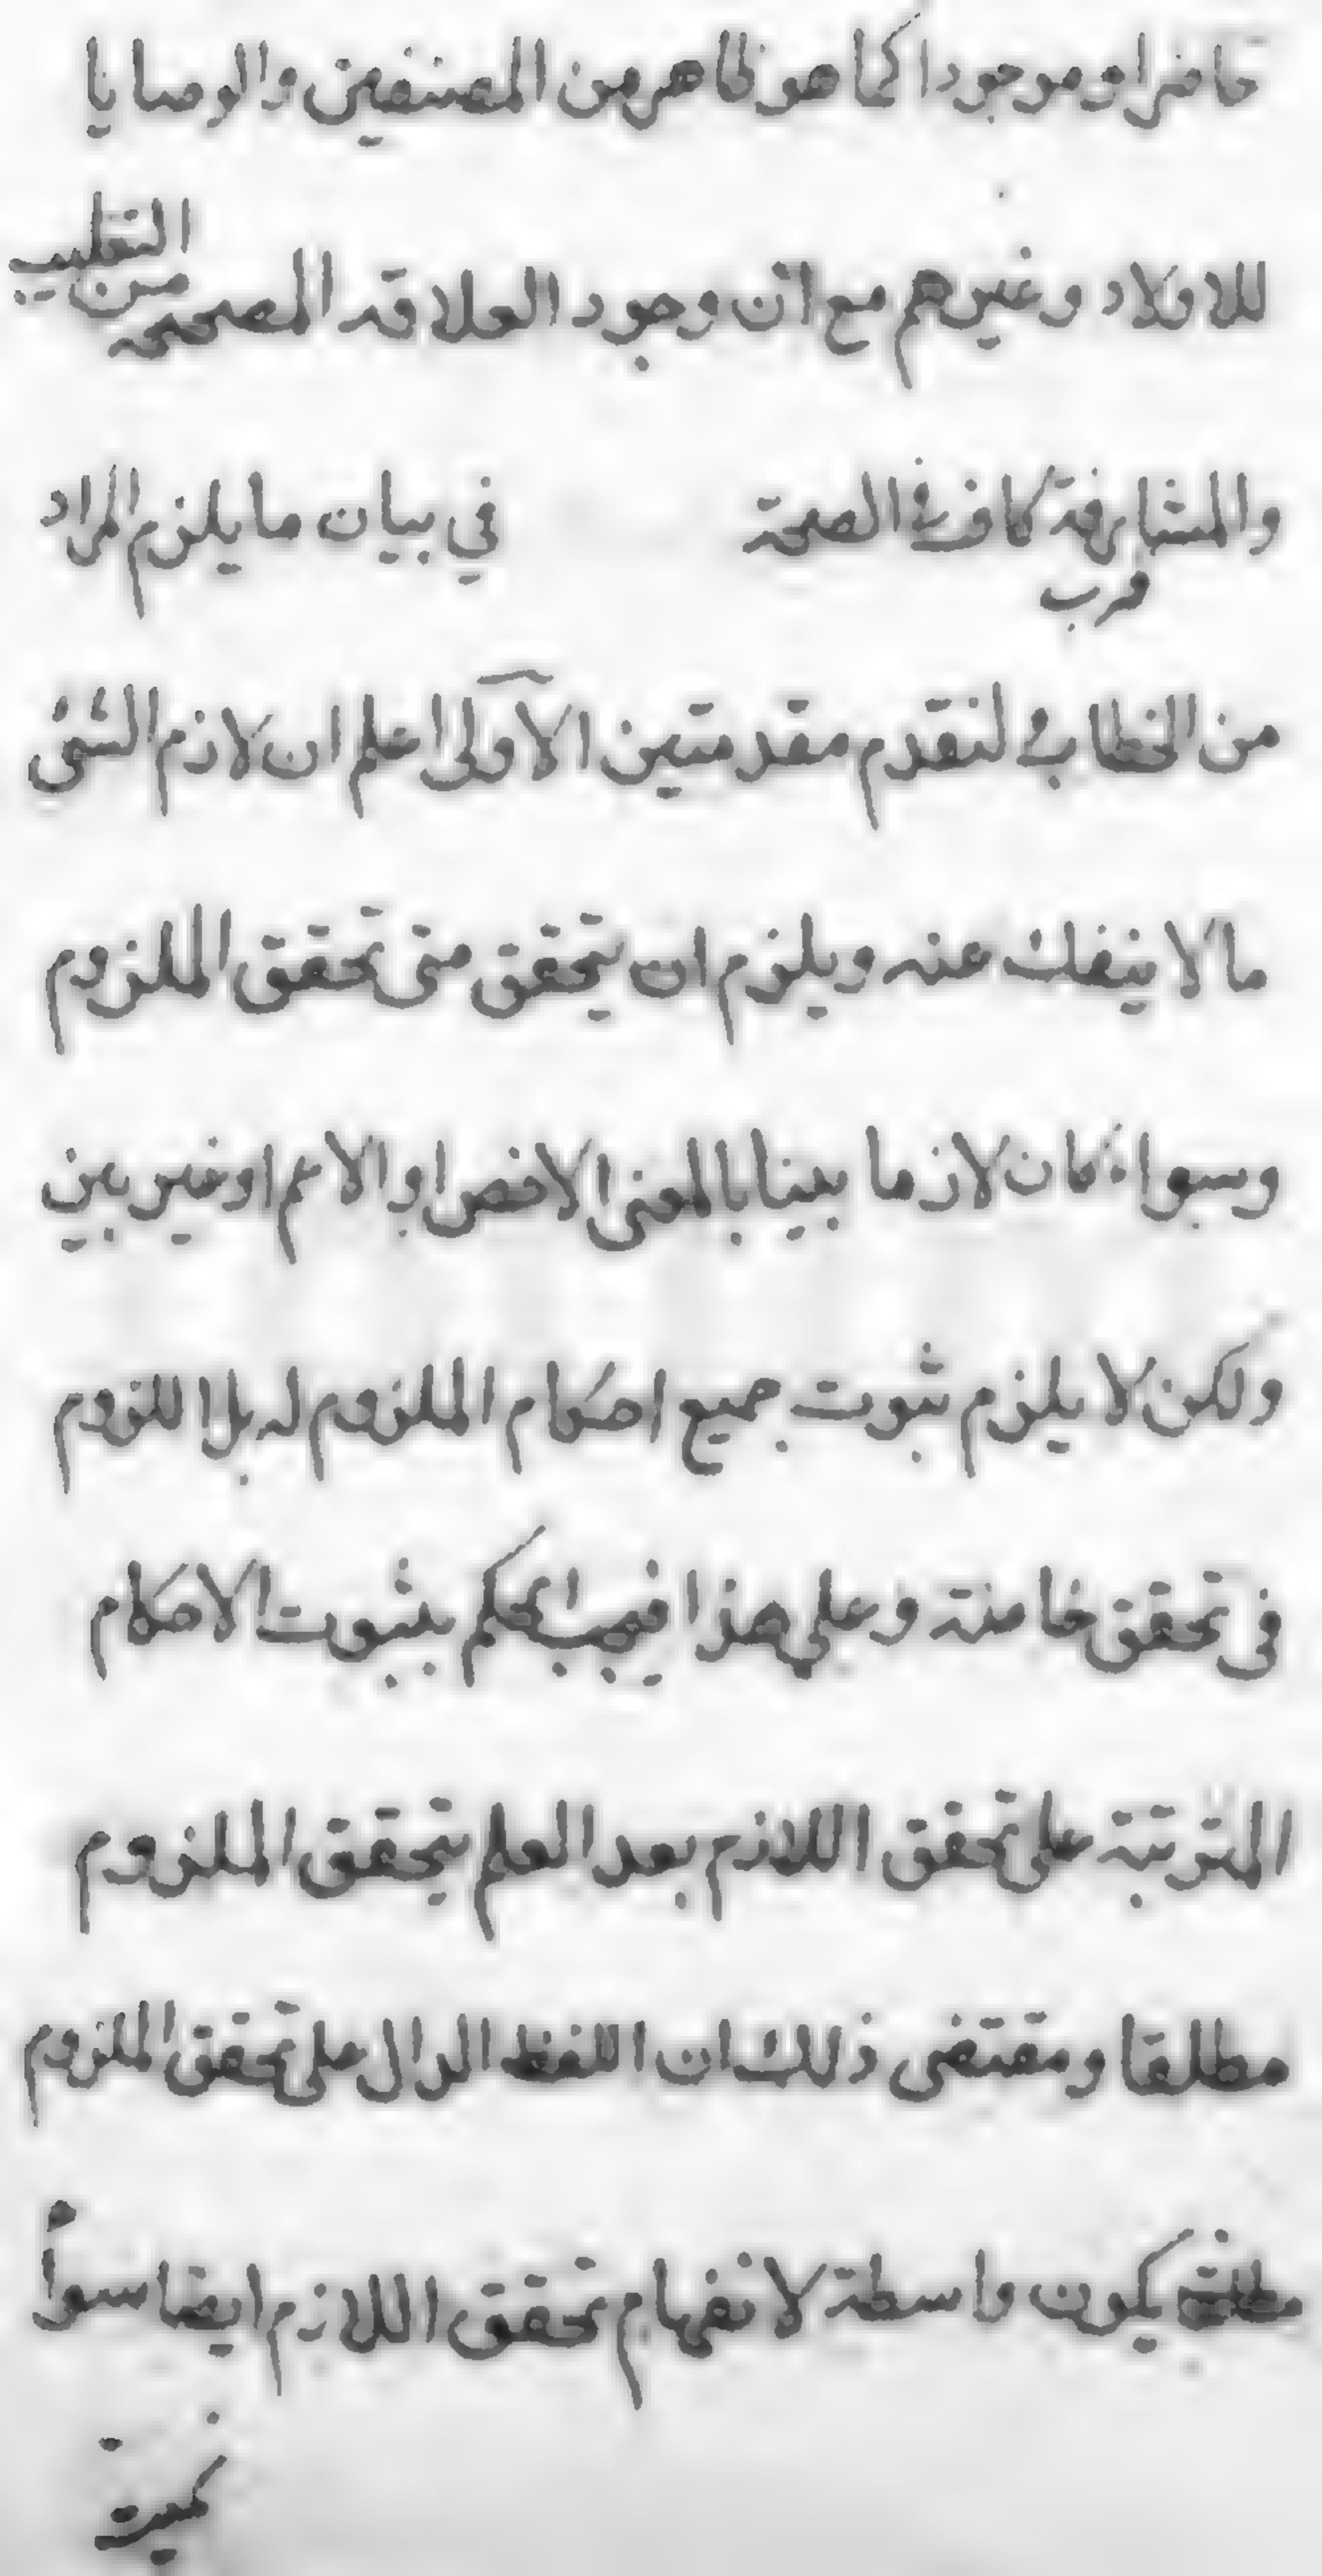 حاضرا و موجودا كما هو ظاهر من المصنفين و الوصايا
للاولاد وغيرهم مع انّ وجود العلاقه المصححه من التغليب
والمشارفة كاف في الصحة في بيان ما يلزم المراد
قرب
من الخطاب ئ لنقدم مقدمتين الاولى اعلم ان لازم الشئ
ما لا ينفك عنه ويلزم ان يتحقق متى تحقق الملزوم
وسواء كان لازما بينا بالمعنى الاخص او الاعم او غير بين
ولكن لا يلزم ثبوت جميع احكام الملزوم له بل اللزوم
فى تحقق خاصة وعلى هذا فيجب الحكم بثبوت الاحكام
المترتبة على تحقق اللازم بعد العلم بتحقق الملزوم
مطلقا ومقتضى ذلك ان اللفظ الدال على تحقق الملزوم
يكون واسطة لانفهام تحقق اللازم ايضا سواأ